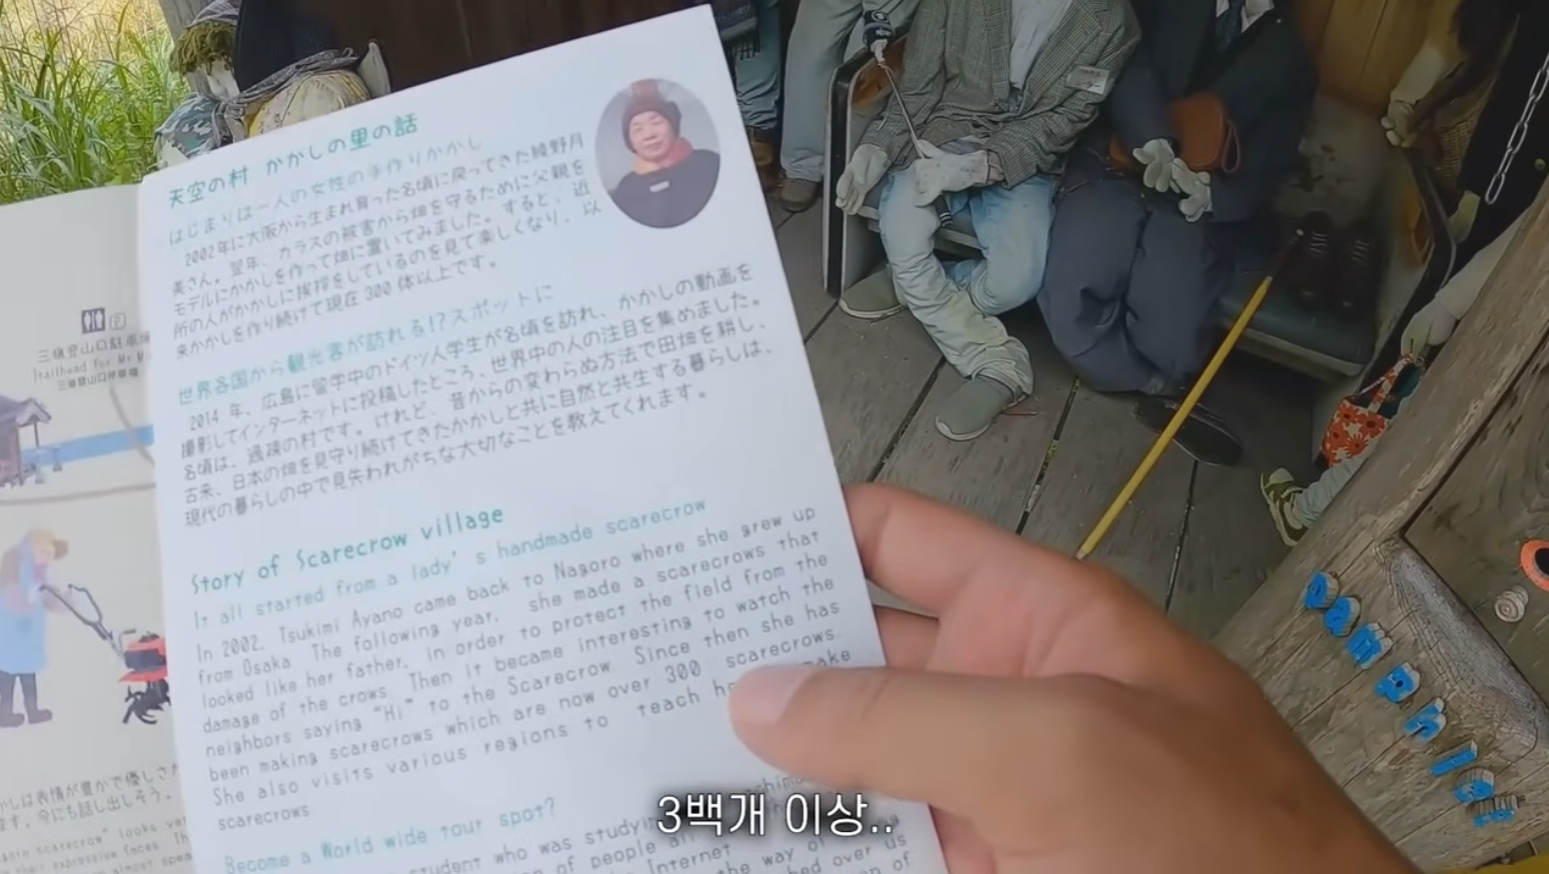 三嶺登山口駐車場
Trailhead for Mt Mi
三嶺登山口停車場
天空の村 かかしの里の話
はじまりは一人の女性の手作りかかし
2002年に大阪から生まれ育った名頃に戻ってきた綾野月
美さん。翌年、カラスの被害から畑を守るために父親を
モデルにかかしを作って畑に置いてみました。すると、近
所の人がかかしに挨拶をしているのを見て楽しくなり、以
来かかしを作り続けて現在300体以上です。
世界各国から観光客が訪れる!?スポットに
2014年、広島に留学中のドイツ人学生が名頃を訪れ、かかしの動画を
撮影してインターネットに投稿したところ、世界中の人の注目を集めました。
名頃は、過疎の村です。けれど、昔からの変わらぬ方法で田畑を耕し、
古来、日本の畑を見守り続けてきたかかしと共に自然と共生する暮らしは、
現代の暮らしの中で見失われがちな大切なことを教えてくれます。
Story of Scarecrow village
It all started from a lady's handmade scarecrow
In 2002, Tsukimi Ayano came back to Nagoro where she grew up
from Osaka. The following year, she made a scarecrows that
looked like her father, in order to protect the field from the
damage of the crows. Then it became interesting to watch the
neighbors saying "Hi" to the Scarecrow. Since then she has
been making scarecrows which are now over 300 scarecrows.
She also visits various regions to teach make
scarecrows.
Become a World wide tour spot?
student who was
of people
Internet the way of
over us
of
かしは表情が豊かで優しさ
ます。今にも話し出しそう。
scarecrow" looks
their expressive faces. Th
almost
3백개 이상..